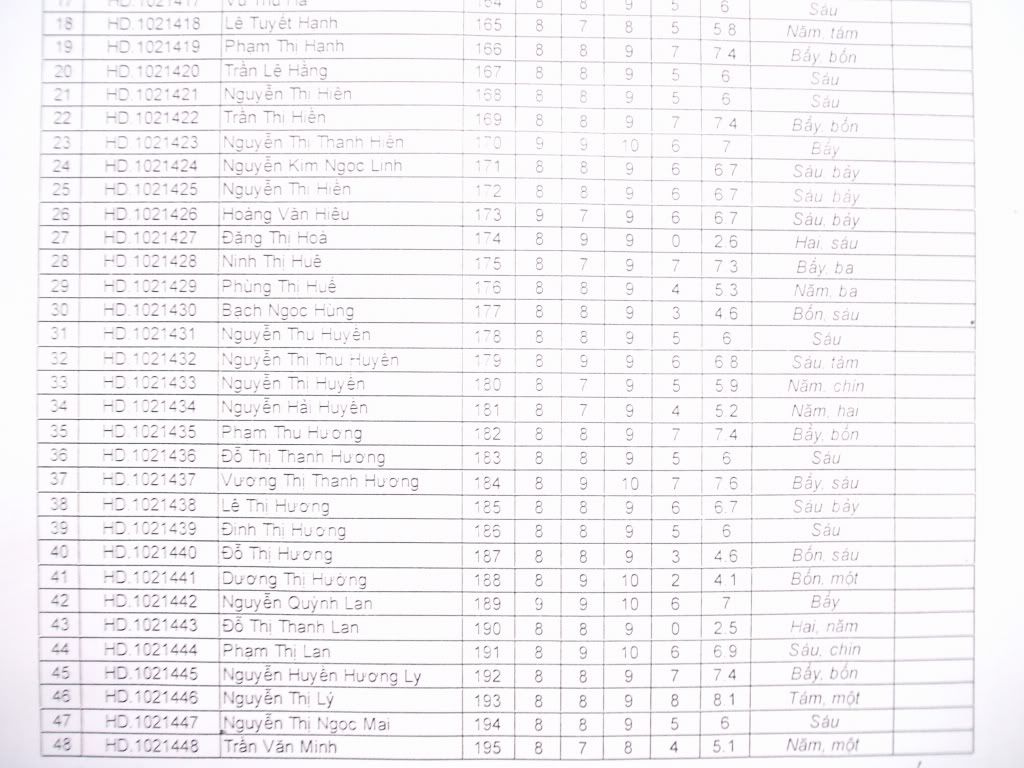 17 HD.1021417 Vũ Thu Hà 164 8 8 9 5 6 Sáu
18 HD.1021418 Lê Tuyết Hạnh 165 8 7 8 5 5.8 Năm, tám
19 HD.1021419 Phạm Thị Hạnh 166 8 8 9 7 7.4 Bẩy, bốn
20 HD.1021420 Trần Lê Hằng 167 8 8 9 5 6 Sáu
21 HD.1021421 Nguyễn Thị Hiên 168 8 8 9 5 6 Sáu
22 HD.1021422 Trần Thị Hiền 169 8 8 9 7 7.4 Bẩy, bốn
23 HD.1021423 Nguyễn Thị Thanh Hiền 170 9 9 10 6 7 Bẩy
24 HD.1021424 Nguyễn Kim Ngọc Linh 171 8 8 9 6 6.7 Sáu bảy
25 HD.1021425 Nguyễn Thị Hiền 172 8 8 9 6 6.7 Sáu bảy
26 HD.1021426 Hoàng Văn Hiêu 173 9 7 9 6 6.7 Sáu, bảy
27 HD.1021427 Đặng Thị Hoà 174 8 9 9 0 2.6 Hai, sáu
28 HD 1021428 Ninh Thị Huê 175 8 7 9 7 7.3 Bẩy, ba
29 HD.1021429 Phùng Thị Huế 176 8 8 9 4 5.3 Năm, ba
30 HD.1021430 Bạch Ngọc Hùng 177 8 8 9 3 4.6 Bốn, sáu
31 HD.1021431 Nguyễn Thu Huyền 178 8 8 9 5 6 Sáu
32 HD.1021432 Nguyễn Thị Thu Huyền 179 8 9 9 6 6.8 Sáu, tám
33 HD.1021433 Nguyễn Thị Huyền 180 8 7 9 5 5.9 Năm, chín
34 HD.1021434 Nguyễn Hải Huyền 181 8 7 9 4 5.2 Năm, hai
35 HD.1021435 Phạm Thu Hương 182 8 8 9 7 7.4 Bẩy, bốn
36 HD.1021436 Đỗ Thị Thanh Hương 183 8 8 9 5 6 Sáu
37 HD.1021437 Vương Thị Thanh Hương 184 8 9 10 7 7.6 Bẩy, sáu
38 HD.1021438 Lê Thị Hương 185 8 8 9 6 6.7 Sáu bảy
39 HD.1021439 Đinh Thị Hương 186 8 8 9 5 6 Sáu
40 HD.1021440 Đỗ Thị Hương 187 8 8 9 3 4.6 Bốn, sáu
41 HD.1021441 Dương Thị Hường 188 8 9 10 2 4.1 Bốn, một
42 HD.1021442 Nguyễn Quỳnh Lan 189 9 9 10 6 7 Bẩy
43 HD.1021443 Đỗ Thị Thanh Lan 190 8 8 9 0 2.5 Hai, năm
44 HD.1021444 Phạm Thị Lan 191 8 9 10 6 6.9 Sáu, chín
45 HD.1021445 Nguyễn Huyền Hương Ly 192 8 8 9 7 7.4 Bẩy, bốn
46 HD.1021446 Nguyễn Thị Lý 193 8 8 9 8 8.1 Tám, một
47 HD.1021447 Nguyễn Thị Ngọc Mai 194 8 8 9 5 6 Sáu
48 HD.1021448 Trần Văn Minh 195 8 7 8 4 5.1 Năm, một